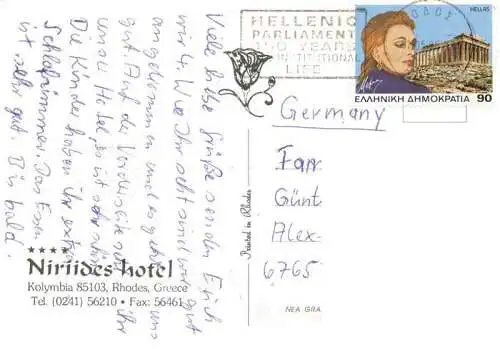 Viele liebe Grüße senden Euch
wir 4. Wie Ihr seht sind wir gut
angekommen und es geht uns
gut. Auf der Vorderseite seht ihr
unser Hotel, es ist sehr schön.
Die Kinder haben ihr extra
Schlafzimmer. Das Essen
ist sehr gut. Bis bald.
★★★★
Niriides hotel
Kolymbia 85103, Rhodes, Greece
Tel. (0241) 56210 • Fax: 56461
Printed in Rhodes
HELLENIC
PARLIAMENT
YEARS
LIFE
HELLAS
ΕΛΛΗΝΙΚΗ ΔΗΜΟΚΡΑΤΙΑ 90
Germany
Fam
Günt
Alex-
6765
NEA GRA